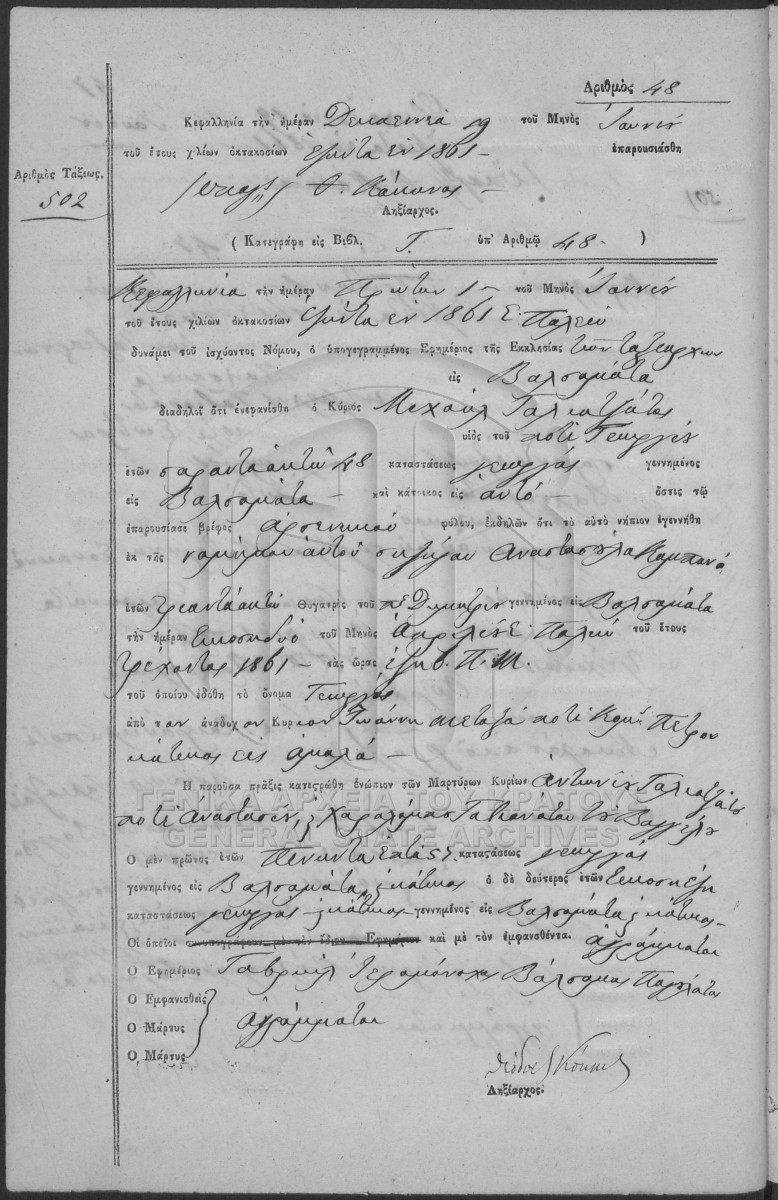 Ἀριθμὸς 48
Κεφαλληνία τὴν ἡμέραν Δεκαεννιά 19 τοῦ Μηνὸς Ἰουνίου
τοῦ ἔτους χιλίων ὀκτακοσίων ἑξῆντα ἕν 1861 – ἐπαρουσιάσθη
Ἀριθμὸς Τάξεως.
502
Θ. Κόκινος –
Ληξίαρχος.
( Κατεγράφη εἰς Βιβλ. Γ. ὑπ' Ἀριθμῷ 48 – )
Κεφαλληνία τὴν ἡμέραν Πρώτην 1 – τοῦ Μηνὸς Ἰουνίου
τοῦ ἔτους χιλίων ὀκτακοσίων ἑξῆντα ἕν 1861 Ε. Παλαιό
δυνάμει τοῦ ἰσχύοντος Νόμου, ὁ ὑπογεγραμμένος Ἐφημέριος τῆς Ἐκκλησίας τῶν Ταξιαρχων
εἰς Βαλσαμάτα
διαδηλοῖ ὅτι ἐνεφανίσθη ὁ Κύριος Μιχαήλ Γαλιατζάτος
υἱὸς τοῦ ποτὲ Γεωργίου
ἐτῶν σαράντα ὀκτώ 48 καταστάσεως γεωργός γεννημένος
εἰς Βαλσαμάτα – καὶ κάτοικος εἰς αὐτό – ὅστις τῷ
ἐπαρουσίασε βρέφος ἀρσενικοῦ φύλου, ἐκδηλῶν ὅτι τὸ αὐτὸ νήπιον ἐγεννήθη
ἐκ τῆς νομήμου αὐτοῦ συζύγου Αναστασούλα Καμπανά
ἐτῶν τριάντα ὀκτώ Θυγατρὸς τοῦ πὲ Δημητρίου γεννημένος εἰς Βαλσαμάτα
τὴν ἡμέραν Εικοσηδύο τοῦ Μηνὸς Ἀπριλίου Ε. Παλαιό τοῦ ἔτους
τρέχοντος 1861 – τὰς ὥρας ἕξη 6. Π. Μ.
τοῦ ὁποίου ἐδόθη τὸ ὄνομα Γεωργιος
ἀπὸ τον ἀνάδοχον Κυριον Ἰωάννη Μεταξά ποτὲ Κομ: Πέτρου
κάτικος εις ὁμαλά –
Ἡ παροῦσα πρᾶξις κατεστρώθη ἐνώπιον τῶν Μαρτύρων Κυρίων Ἀντωνίου Γαλιατζάτο
ποτὲ Ἀναστασίου, & Χαράλαμπο Γα του Βαγγέλη
Ὁ μὲν πρῶτος ἐτῶν Πενηντα επτά 57. καταστάσεως γεωργός
γεννημένος εἰς Βαλσαμάτα & κάτικος ὁ δὲ δεύτερος ἐτῶν Εικοσηέξη
καταστάσεως γεωργός – & κάτικος – γεννημένος εἰς Βαλσαμάτα & κάτικος –
Οἱ ὁποῖοι συνυπογράφουν μὲ τὸν ἴδιον Ἐφημέριον καὶ μὲ τὸν ἐμφανισθέντα. ἀγράμματοι
Ὁ Ἐφημέριος Γαβριήλ Ιερομόναχος Βάλσαμος
Ὁ Ἐμφανισθεὶς
Ὁ Μάρτυς ἀγράμματοι
Ὁ Μάρτυς
Ληξίαρχος.
ΓΕΝΙΚΑ ΑΡΧΕΙΑ ΤΟΥ ΚΡΑΤΟΥΣ
GENERAL STATE ARCHIVES